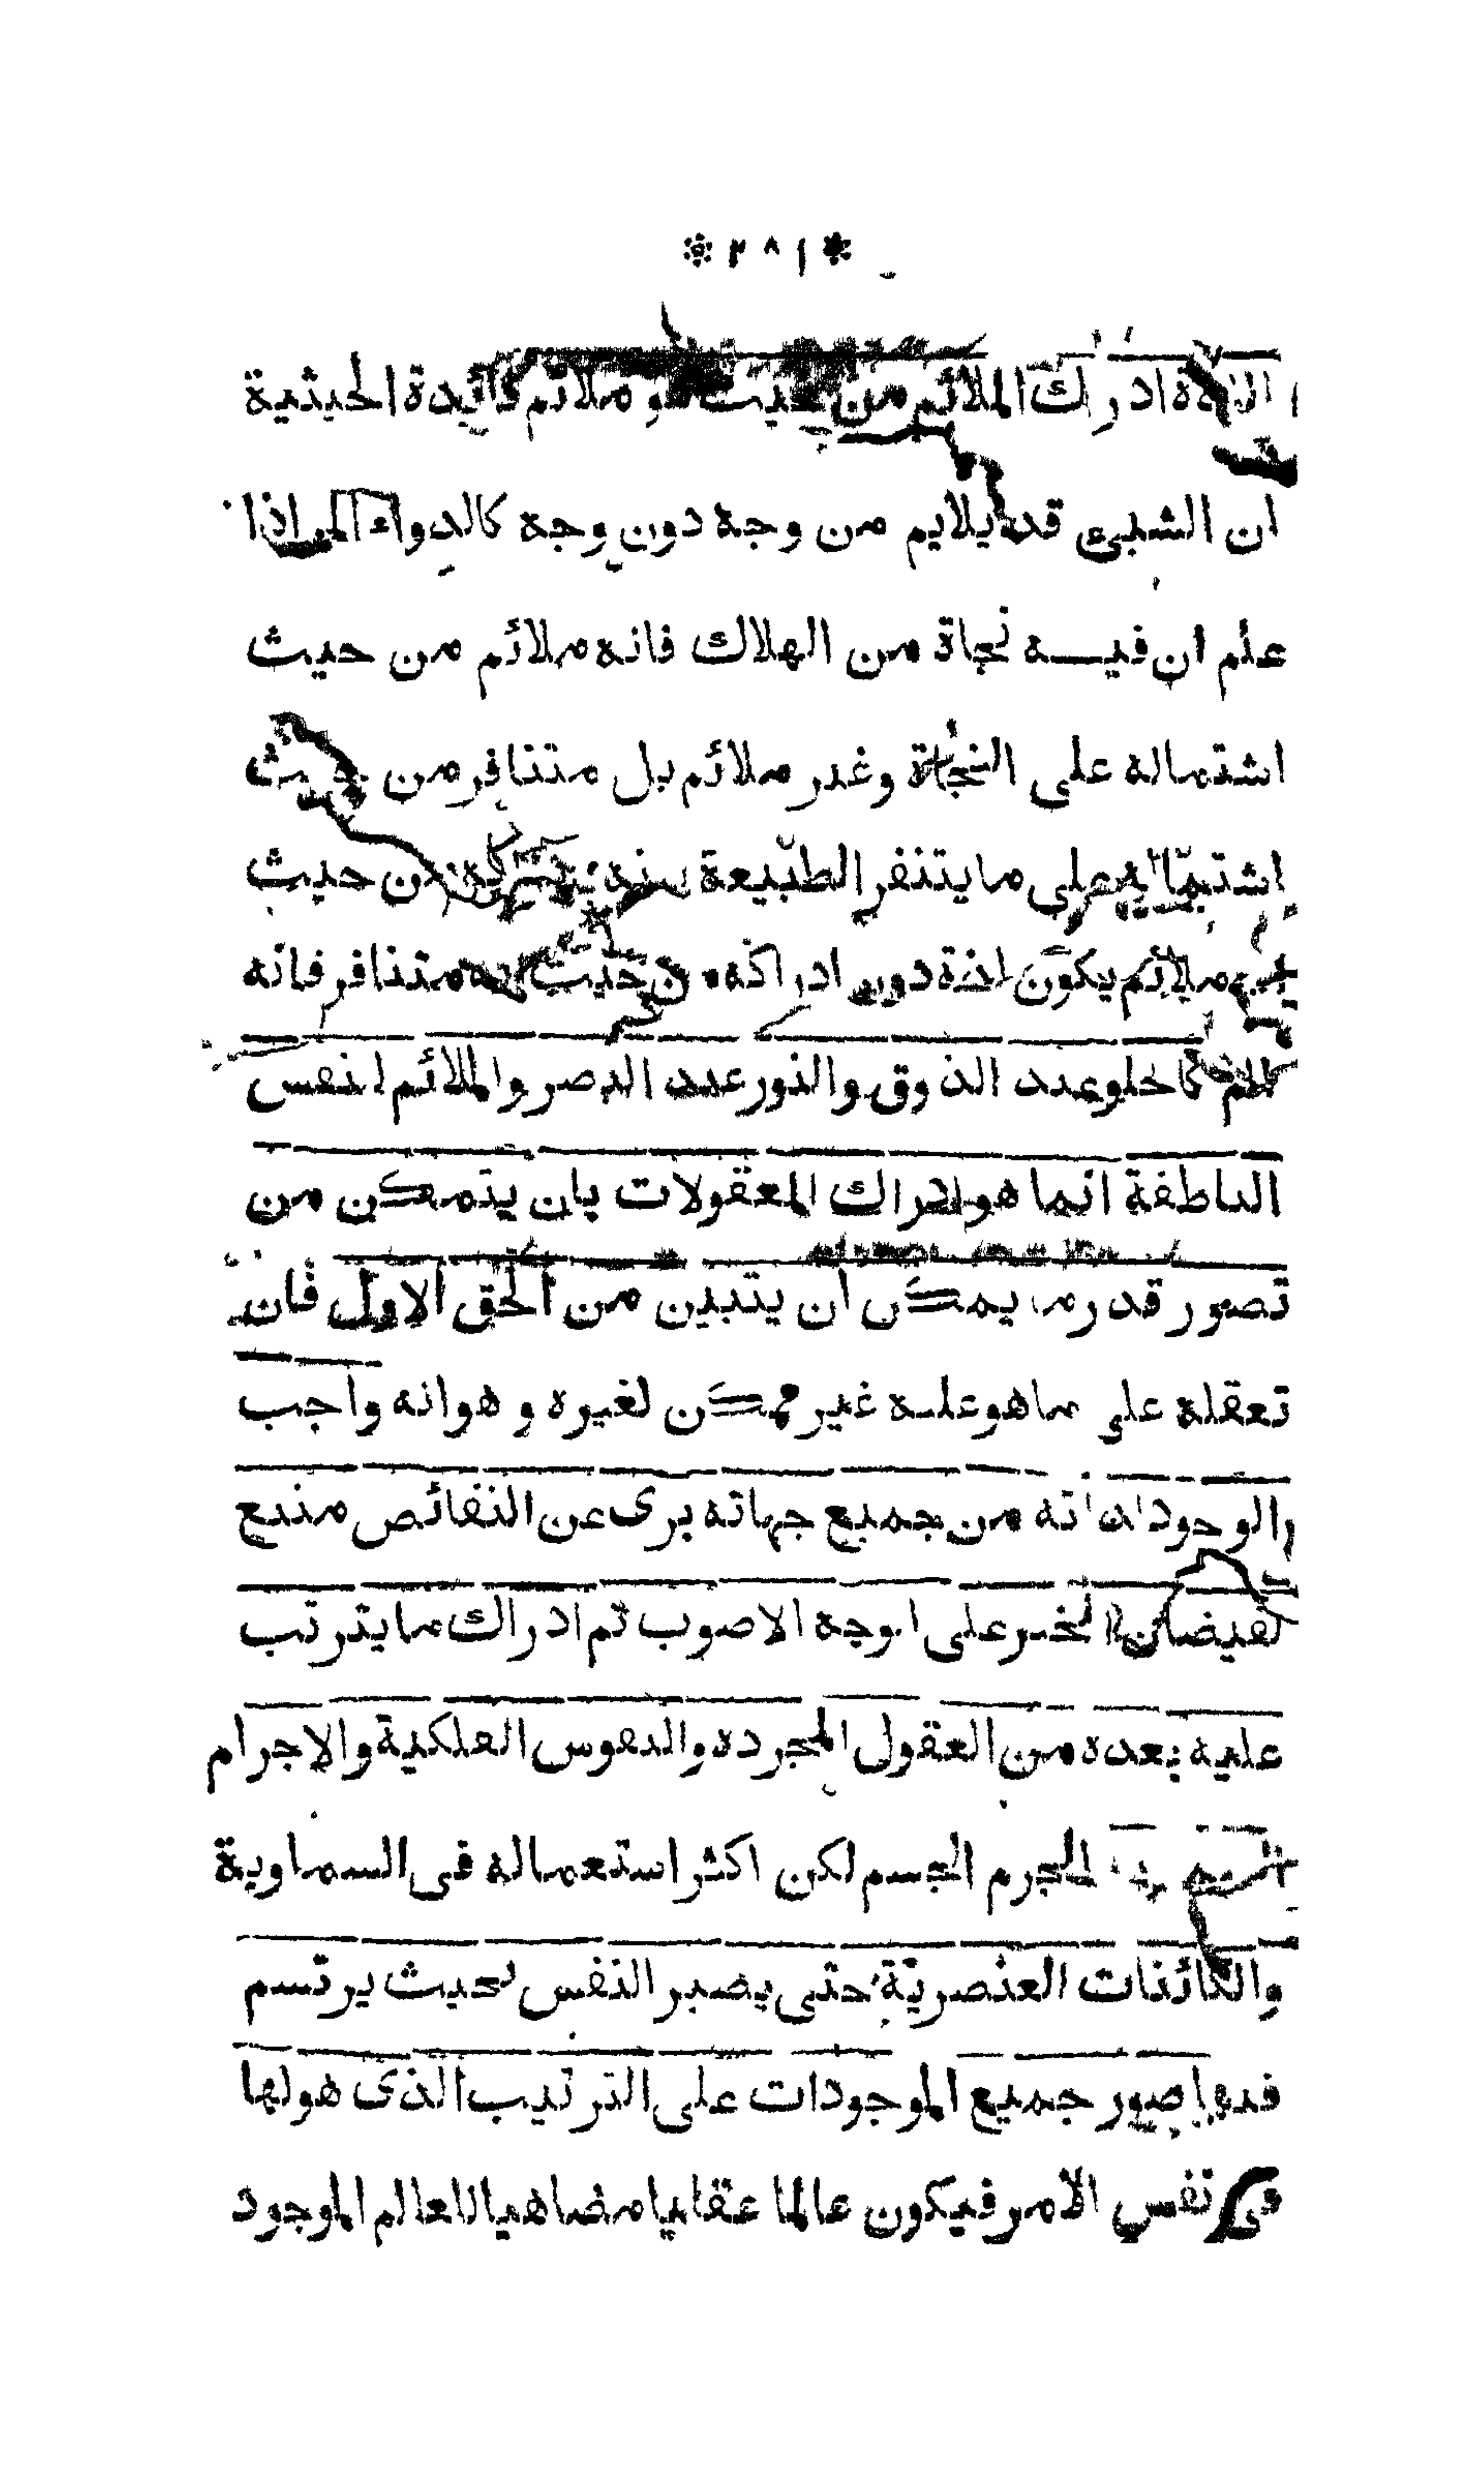 * ٢٨١ *
اللذة ادراك الملائم من حيث هو ملائم فائدة الحيثية
ان الشىء قد يلايم من وجه دون وجه كالدواء المر اذا
علم ان فيه نجاة من الهلاك فانه ملائم من حيث
اشتماله على النجاة وغير ملائم بل متنافر من حيث
اشتماله على ما يتنفر الطبيعة منه من حيث
ملائم يكون لذة دون ادراكه من حيث متنافر فانه
كالحلو عند الذوق والنور عند البصر والملائم لنفس
الناطقة انما هو ادراك المعقولات بان يتمكن من
تصور قدر ما يمكن ان يتبين من الحق الاول فان
تعقله على ما هو عليه غير ممكن لغيره و هو انه واجب
الوجود لذاته من جميع جهاته برى عن النقائص منبع
لفيضان الخير على الوجه الاصوب ثم ادراك ما يترتب
عليه بعده من العقول المجرده والنفوس الفلكية والاجرام
الجرم الجسم لكن اكثر استعماله فى السماوية
والكائنات العنصرية حتى يصير النفس بحيث يرتسم
فيها صور جميع الموجودات على الترتيب الذى هو لها
فى نفس الامر فيكون عالما عقليا مضاهيا للعالم الموجود